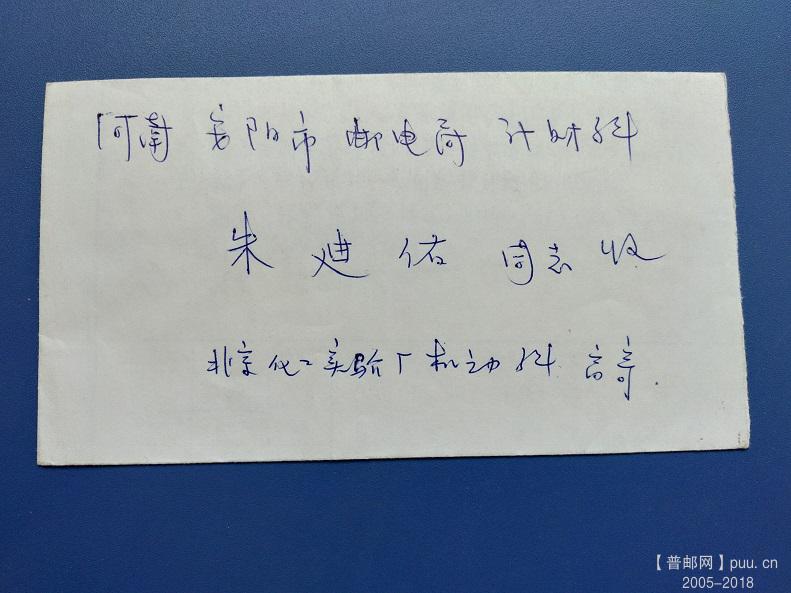 河南 安阳市 邮电局 计财科
朱 迪 佑 同志 收
北京化工实验厂机动科 高寄.
【普邮网】puu.cn
2005-2018